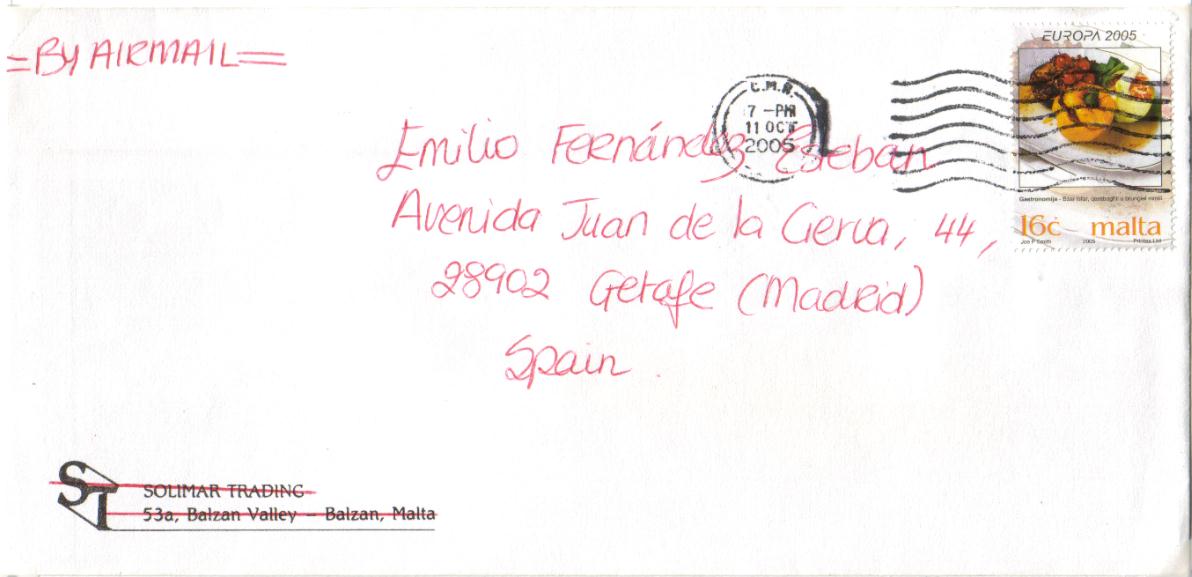 =BY AIRMAIL=
EUROPA 2005
C.M.R.
7-PM
11 OCT
2005
Emilio Fernández Eseban
Avenida Juan de la Cierva, 44,
28902 Getafe (Madrid)
Spain.
Gastronomija -
16c malta
2005 Printex Ltd
ST
SOLIMAR TRADING
53a, Balzan Valley – Balzan, Malta